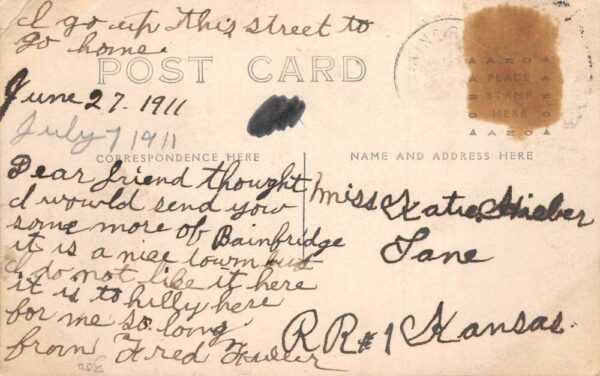 I go up this street to
go home.
POST CARD
June 27. 1911
July 7 1911
PLACE
STAMP
HERE
AZO
CORRESPONDENCE HERE
NAME AND ADDRESS HERE
Dear friend thought
I wovold send yow
some more of Bainbridge
it is a nice towm but
I do not like it here
it is to hilly here
for me so long
from Fred
Miss Katie
Lane
RR#1 Kansas.